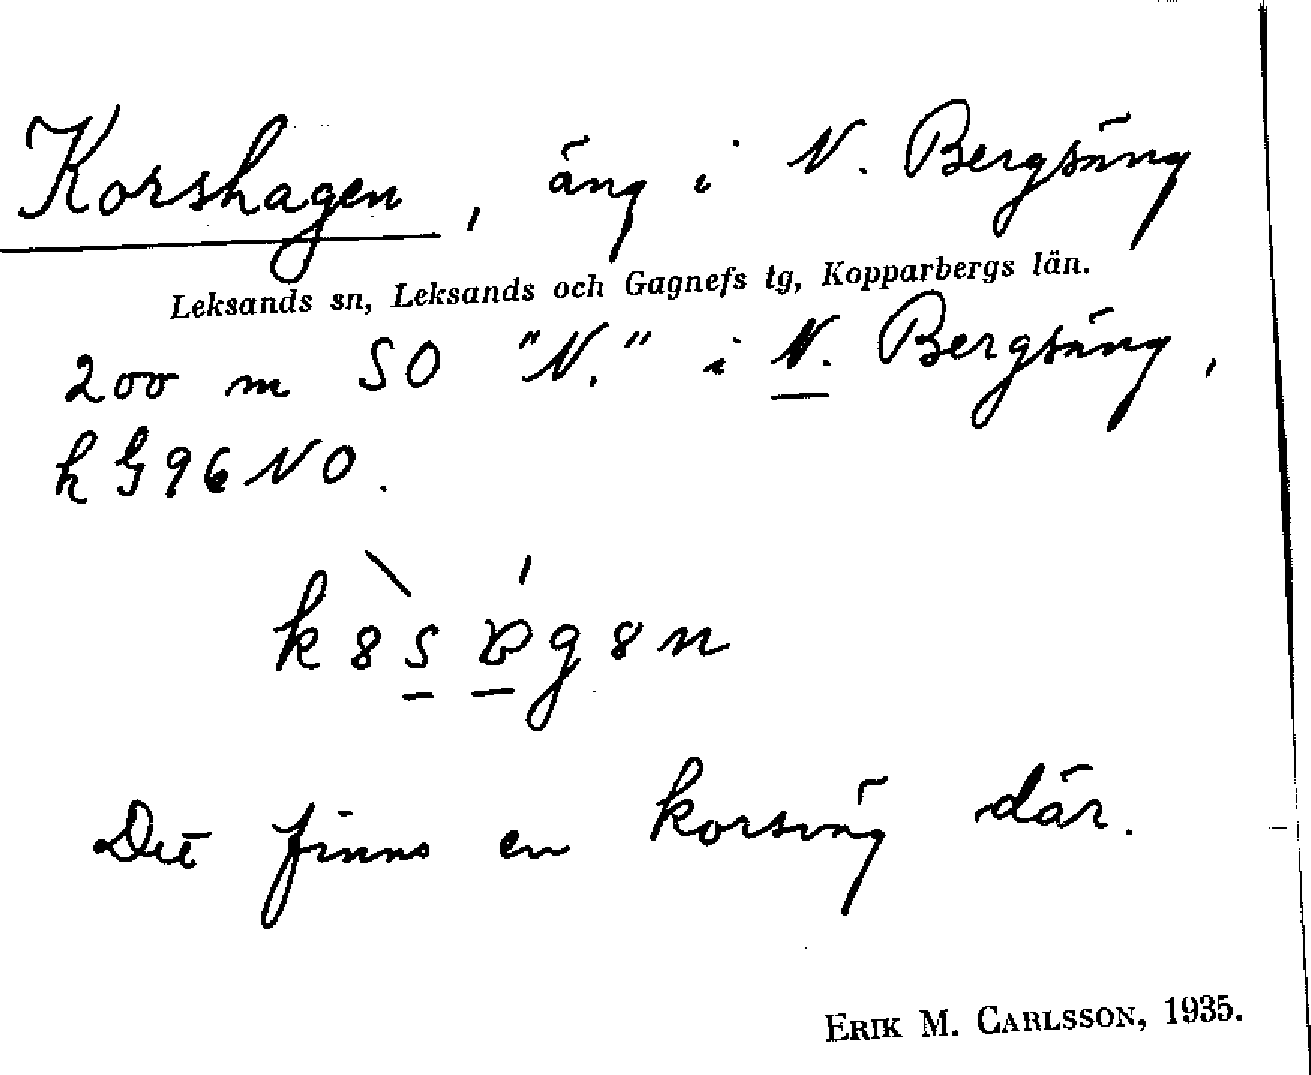 Korshagen, äng i N. Bergsäng
Leksands sn, Leksands och Gagnefs tg, Kopparbergs län.
200 m SO "N." i N. Bergsäng,
h G 96 NO.
Det finns en korsväg där.
ERIK M. CARLSSON, 1935.